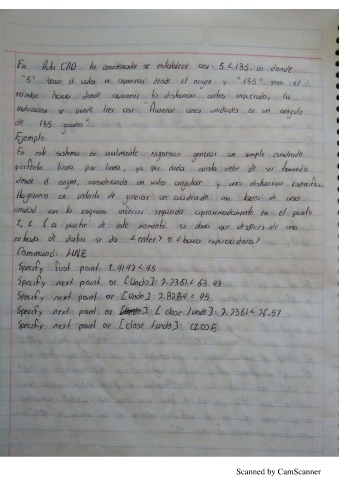 En Auto CAD la coordenada se establece así: 5<135, en donde
"5" sería el valor a avanzar desde el origen y "135" será el
rumbo hacia donde avanzar la distancia antes mostrada, la
indicación se puede leer así "Avanzar cinco unidades en un ángulo
de 135 grados".
Ejemplo
En este sistema es realmente engorroso generar un simple cuadrado
perfecto línea por línea, ya que cada arista debe de ser tomada
desde el origen, considerando un valor angular y una distancia específica.
Hagamos un intento de generar un cuadrado con lados de una
unidad con la esquina inferior izquierda en el punto
1, 1 (a partir de este momento se dará que después de una
entrada de datos se da <enter> o <barra espaciadora>)
Command: LINE
Specify first point: 1.4142 < 45
Specify next point or [Undo]: 2.2361 < 63.43
Specify next point or [Undo]: 2.8284 < 45
Specify next point or [close /undo]: 2.2361 < 26.57
Specify next point or [close /undo]: CLOSE
Scanned by CamScanner